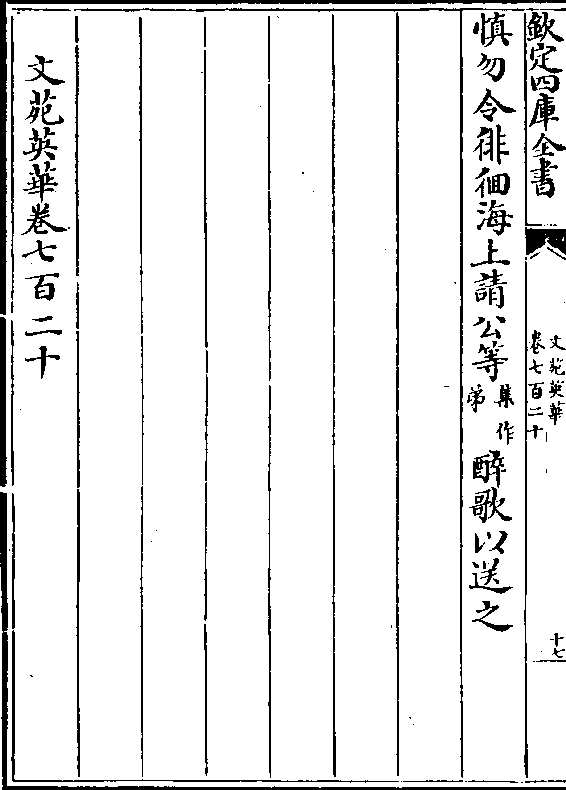 欽定四庫全書
文苑英華
卷七百二十
十七
慎勿令徘徊海上請公等集作弟醉歌以送之
文苑英華卷七百二十